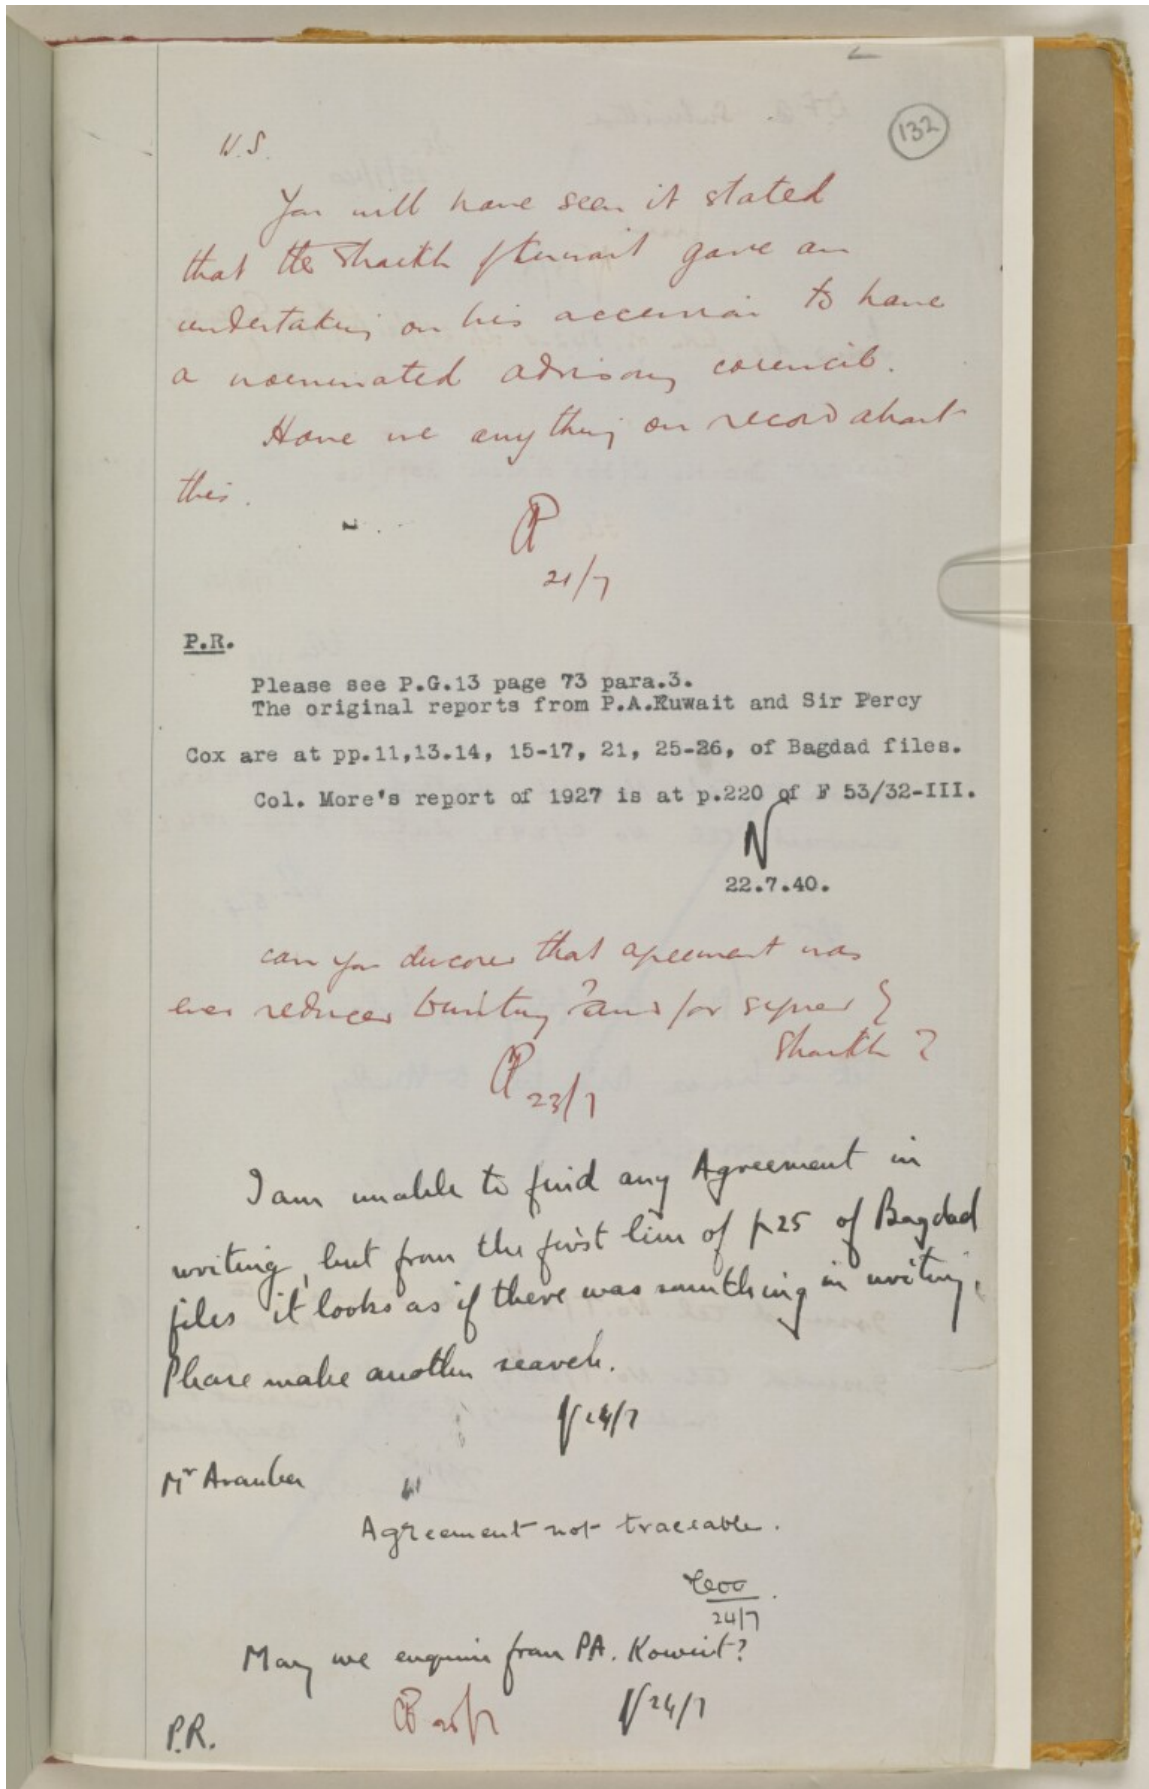 132
U.S.
You will have seen it stated
that the Shaikh of Kuwait gave an
undertaking on his accession to have
a nominated advisory council.
Have we anything on record about
this.
21/7
P.R.
Please see P.G.13 page 73 para.3.
The original reports from P.A.Kuwait and Sir Percy
Cox are at pp.11,13.14, 15-17, 21, 25-26, of Bagdad files.
Col. More's report of 1927 is at p.220 of F 53/32-III.
22.7.40.
can you discover that agreement was
ever reduced to writing ? and/or signed by
Shaikh ?
23/7
I am unable to find any Agreement in
writing, but from the first line of p 25 of Bagdad
files it looks as if there was something in writing.
Please make another search.
24/7
Mr
Agreement not traceable.
24/7
May we enquire from PA. Koweit?
24/7
P.R.